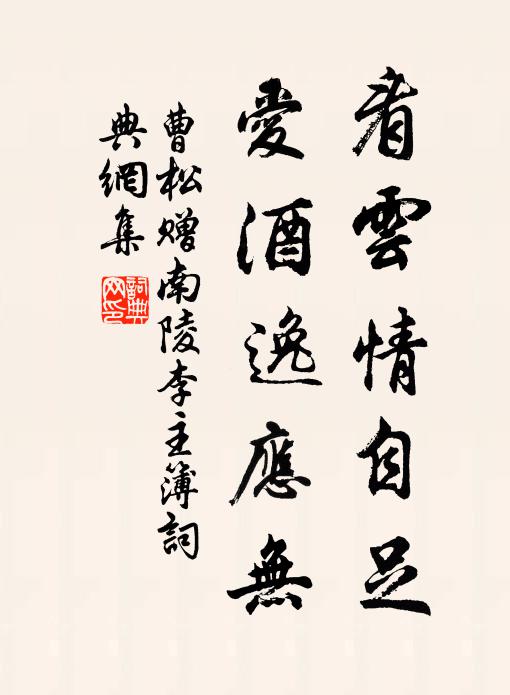 看雲情自足
愛酒逸應無
曹松贈南陵李主簿詞
典網集
詞典
网印